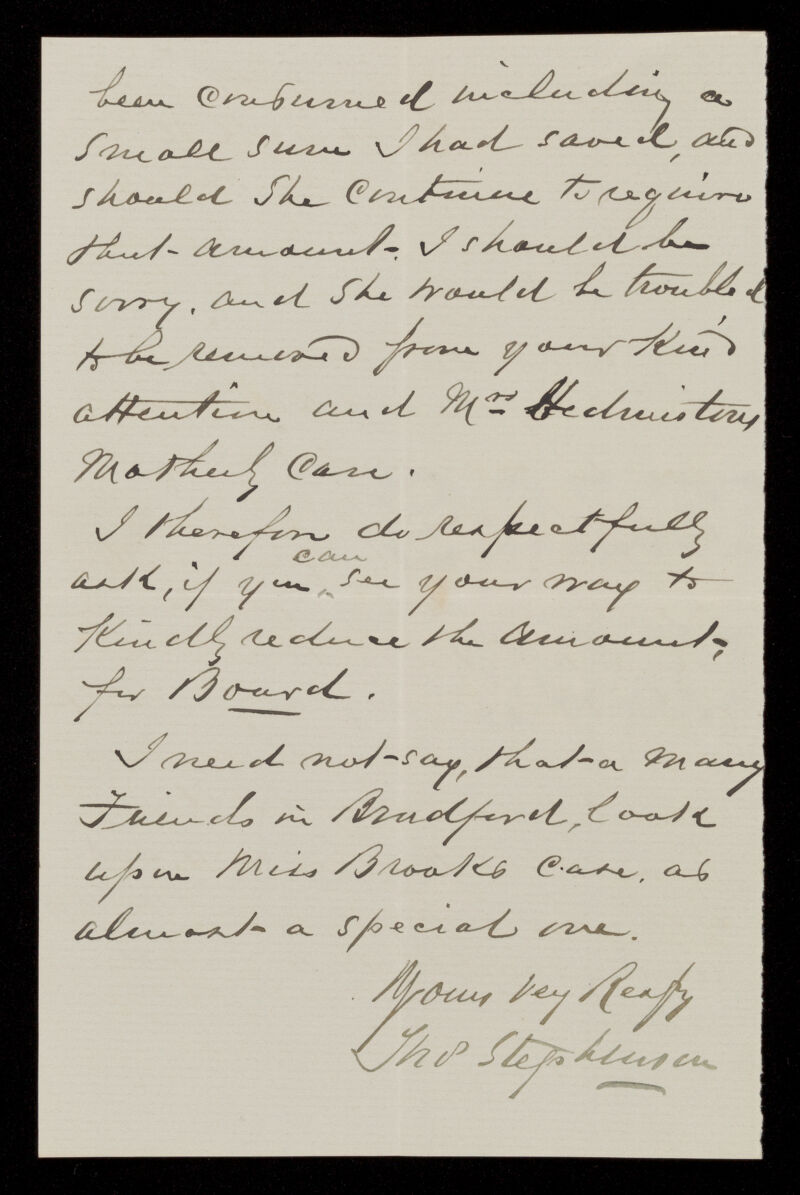 been consumed including a
small sum I had saved, and
should she continue to require
that amount. I should be
sorry. and she would be troubled
to be removed from your kind
attention and Mrs Hedmistons
Motherly Care.
I therefore do respectfully
ask, if you can see your way to
Kindly reduce the amount,
for Board.
I need not say, that a many
Friends in Bradford, look
upon Miss Brooks case. as
almost a special one.
Yours very Respy
Thos Stephenson